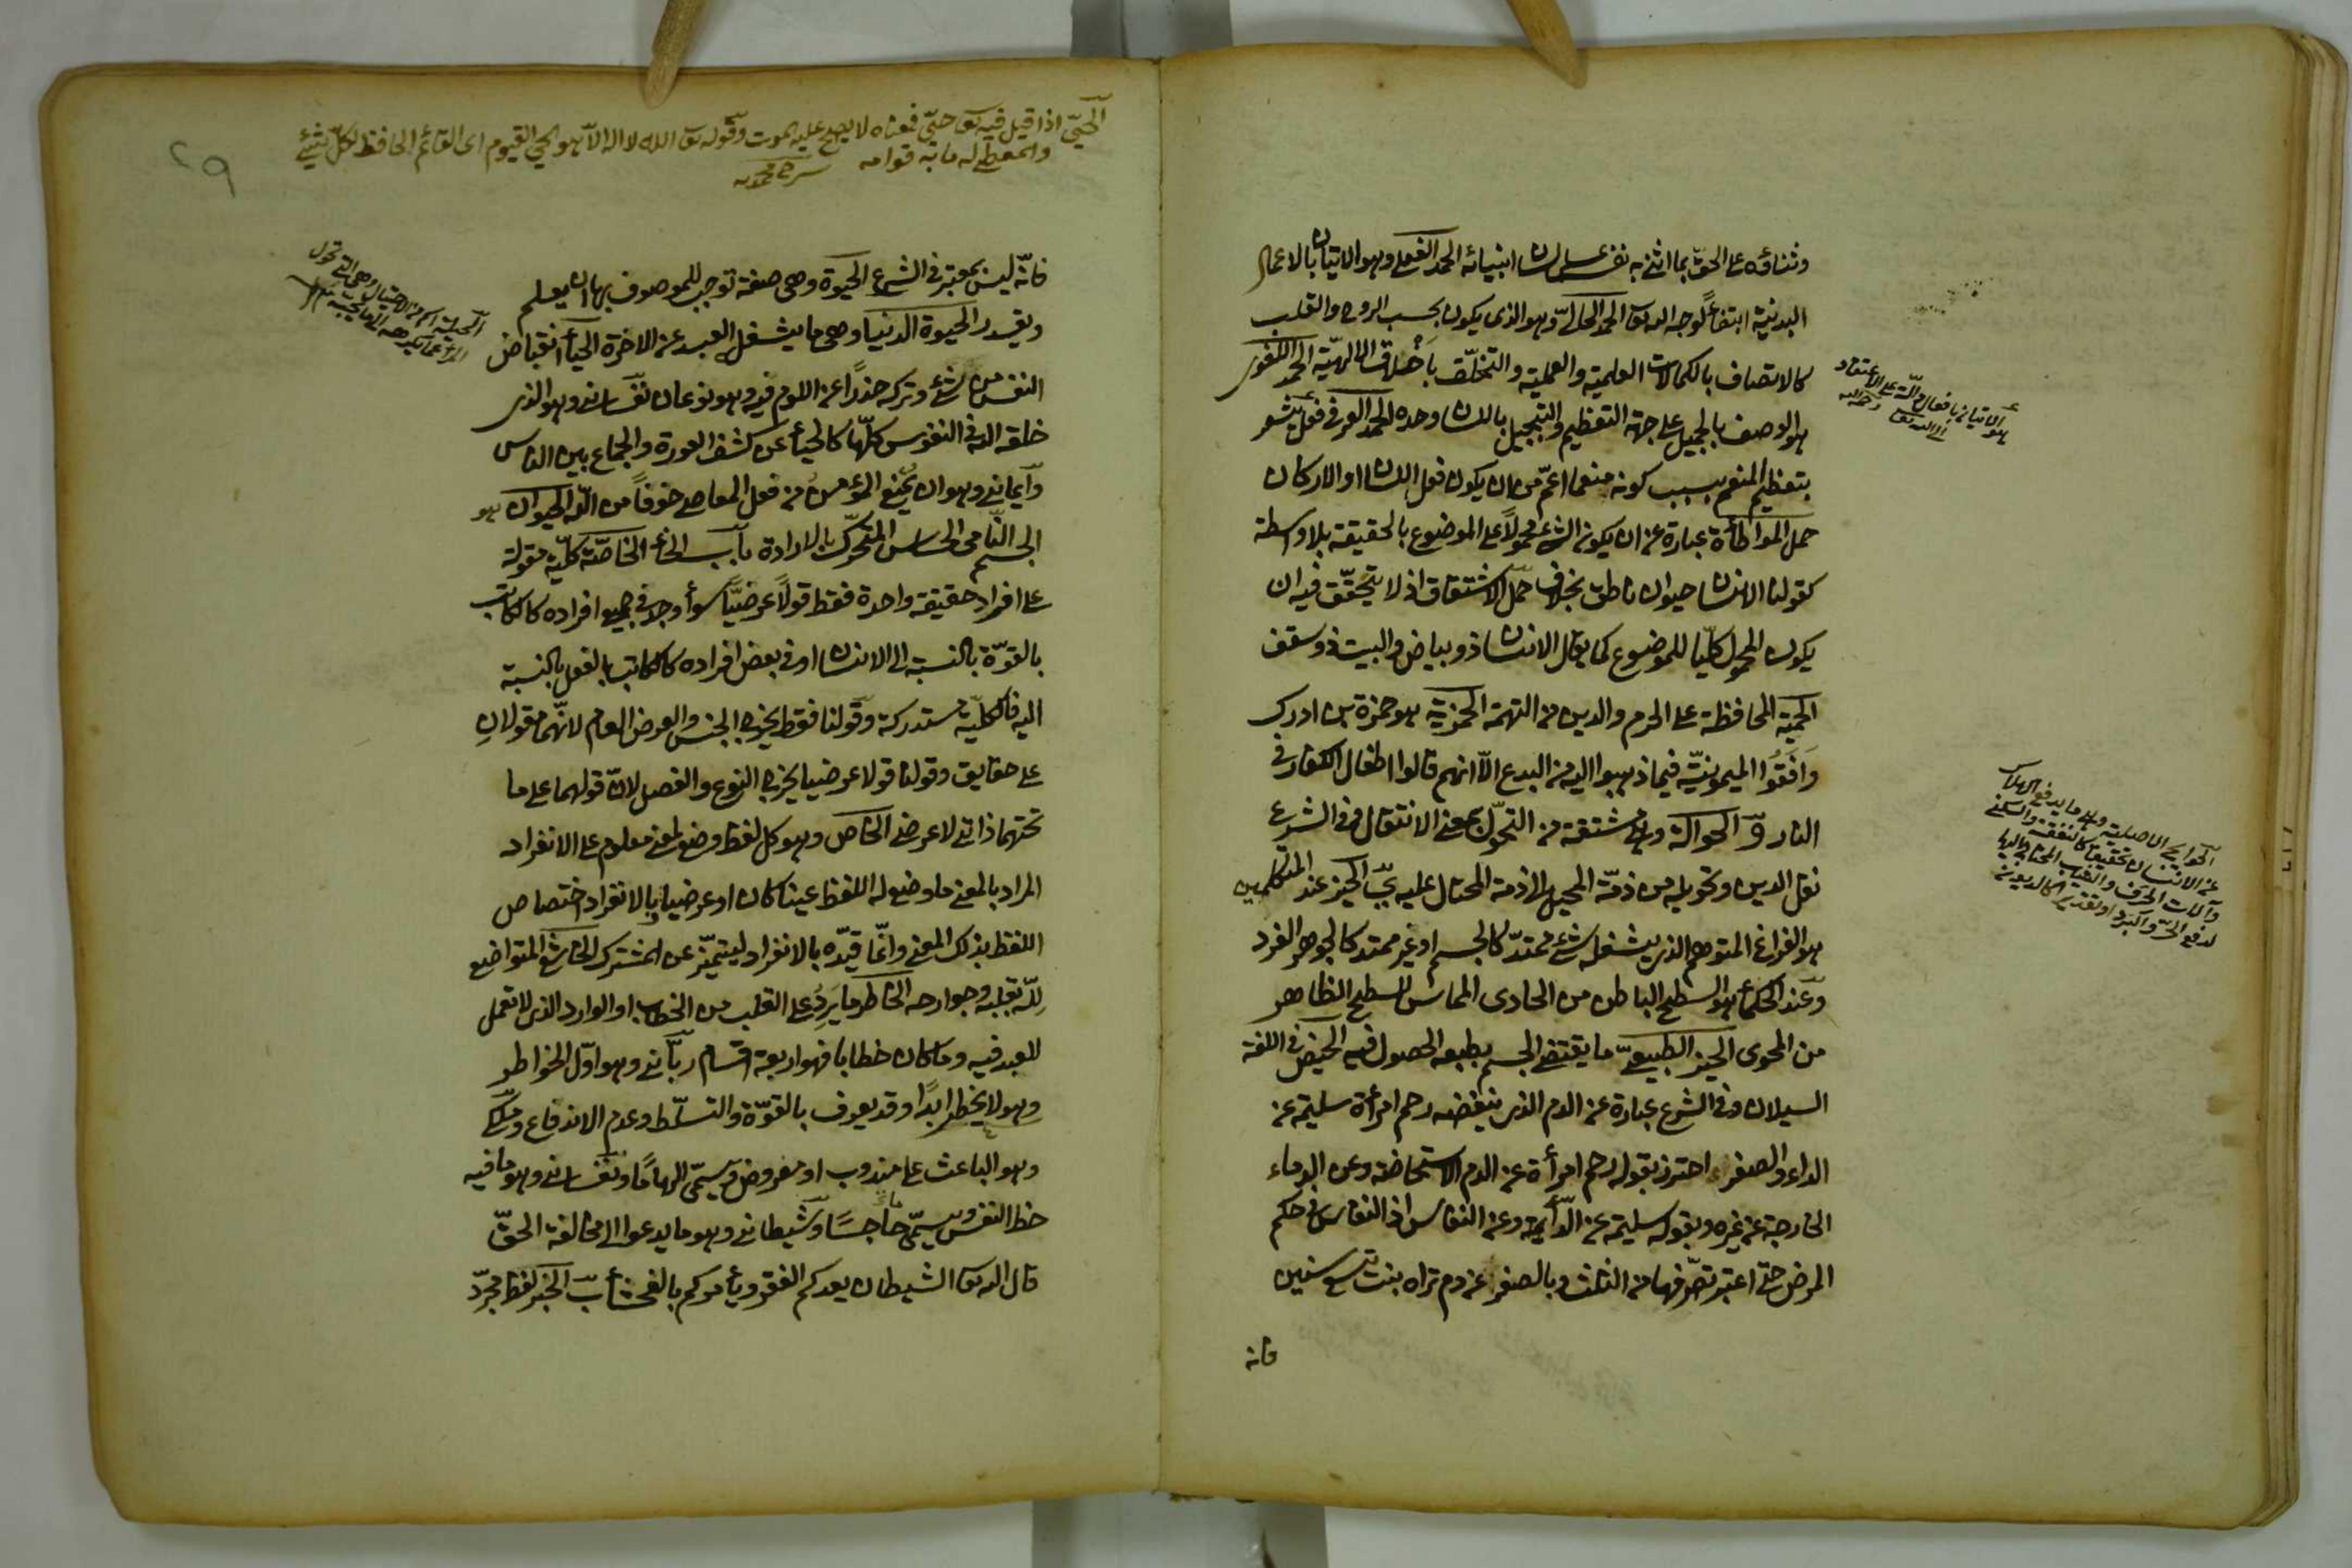 وثناؤه على الحق بما اثنى به نفسه على لسان انبيائه الحمد الفعلى وهو الاتيان بالاعمال
البدنية ابتغاءً لوجه الله تعالى الحمد الحالىّ وهو الذى يكون بحسب الروح والقلب
كالاتصاف بالكمالات العلمية والعملية والتخلّق باخلاق الالهيّة الحمد اللغوى
هو الوصف بالجميل على جهة التعظيم والتبجيل باللسان وحده الحمد العرفى فعل يشعر
بتعظيم المنعم بسبب كونه منعما اعمّ من ان يكون فعل اللسان او الاركان
حمل المواطأة عبارة عن ان يكون الشئ محمولاً على الموضوع بالحقيقة بلا واسطة
كقولنا الانسان حيوان ناطق بخلاف حمل الاشتقاق اذ لا يتحقّق فيه ان
يكون المحمول كليّا للموضوع كما يقال الانسان ذو بياض والبيت ذو سقف
الحمية المحافظة على الحرم والدين من التهمة الحمزية هو حمزة بن ادرك
وافقوا الميمونيّة فيما ذهبوا اليه من البدع الّا انهم قالوا اطفال الكفار فى
النار وّ الحوالة وهى مشتقة من التحوّل بمعنى الانتقال وفى الشرع
نقل الدين وتحويله من ذمّة المحيل الى ذمة المحتال عليه يّ الحيز عند المتكلمين
هو الفراغ المتوهم الذى يشغله شئ ممتدّ كالجسم او غير ممتد كالجوهر الفرد
وعند الحكماء هو السطح الباطن من الحاوى المماس للسطح الظاهر
من المحوى الحيز الطبيعىّ ما يقتضى الجسم بطبعه الحصول فيه الحيض فى اللغة
السيلان وفى الشرع عبارة عن الدم الذى ينفضه رحم امرأة سليمة عن
الداء والصغر احترز بقوله رحم امرأة عن الدم الاستحاضة وعن الدماء
الخارجة عن غيره وبقوله سليمة عن الدائمة وعن النفاس اذ النفاس فى حكم
المرض حتى اعتبر تصرّفها من الثلث وبالصغر عن دم تراه بنت تسع سنين
فانه
هو الاتيان بافعال دالّة على الاعتقاد
الحوايج الاصلية وهى ما يدفع الهلاك
عن الانسان تحقيقا كالنفقة والسكنى
وآلات الحرف والثياب المحتاج اليها
لدفع الحرّ والبرد او تقديرا كالديون
الحىّ اذا قيل فيه تع حىّ فمعناه لا يصح عليه الموت وقوله تع الله لا اله الّا هو الحى القيوم اى القائم الحافظ لكلّ شئ
والمعطى له ما به قوامه
٢٩
فانّه ليس بمعتبر فى الشرع الحيوة وهى صفة توجب للموصوف بها ان يعلم
ويقدر الحيوة الدنيا وهى ما يشغل العبد عن الاخرة الحياء انقباض
النفس من شئ وتركه حذرًا عن اللوم فيه وهو نوعان نفسانى وهو الذى
خلقه الله فى النفوس كلّها كالحياء عن كشف العورة والجماع بين الناس
وايمانى وهو ان يمنع المؤمن من فعل المعاصى خوفاً من الله الحيوان هو
الجسم النّامى الحساس المتحرّك بالارادة باب الخاء الخاصّة كليّة مقولة
على افراد حقيقة واحدة فقط قولاً عرضيًّا سواء وجد فى جميع افراده كالكاتب
بالقوّة بالنسبة الى الانسان او فى بعض افراده كالكاتب بالفعل بالنسبة
اليه فالكليّة مستدركة وقولنا فقط يخرج الجنس والعرض العام لانّهما مقولان
على حقايق وقولنا قولا عرضيا يخرج النوع والفصل لانّ قولهما على ما
تحتهما ذاتى لا عرضى الخاص وهو كل لفظ وضع لمعنى معلوم على الانفراد
المراد بالمعنى ما وضع له اللفظ عينا كان او عرضيا وبالانفراد اختصاص
اللفظ بذلك المعنى وانّما قيّده بالانفراد ليتميّز عن المشترك الخاشع المتواضع
للّه بقلبه وجوارحه الخاطر ما يَرِدُ على القلب من الخطاب او الوارد الذى لا تعمل
للعبد فيه وما كان خطابا فهو اربعة اقسام ربّانى وهو اوّل الخواطر
وهو لا يخطئ ابدًا وقد يعرف بالقوّة والتسلّط وعدم الاندفاع وملكىّ
وهو الباعث على مندوب او مفروض ويسمّى الهامًا ونفسانى وهو ما فيه
حظ النفس ويسمّى هاجسًا وشيطانى وهو ما يدعو الى مخالفة الحقّ
قال الله تعالى الشيطان يعدكم الفقر ويأمركم بالفحشاء بّ الخبر لفظ مجرّد
الحيلة اسم من الاحتيال وهى التى تحول
المرء عما يكرهه الى ما يحبه